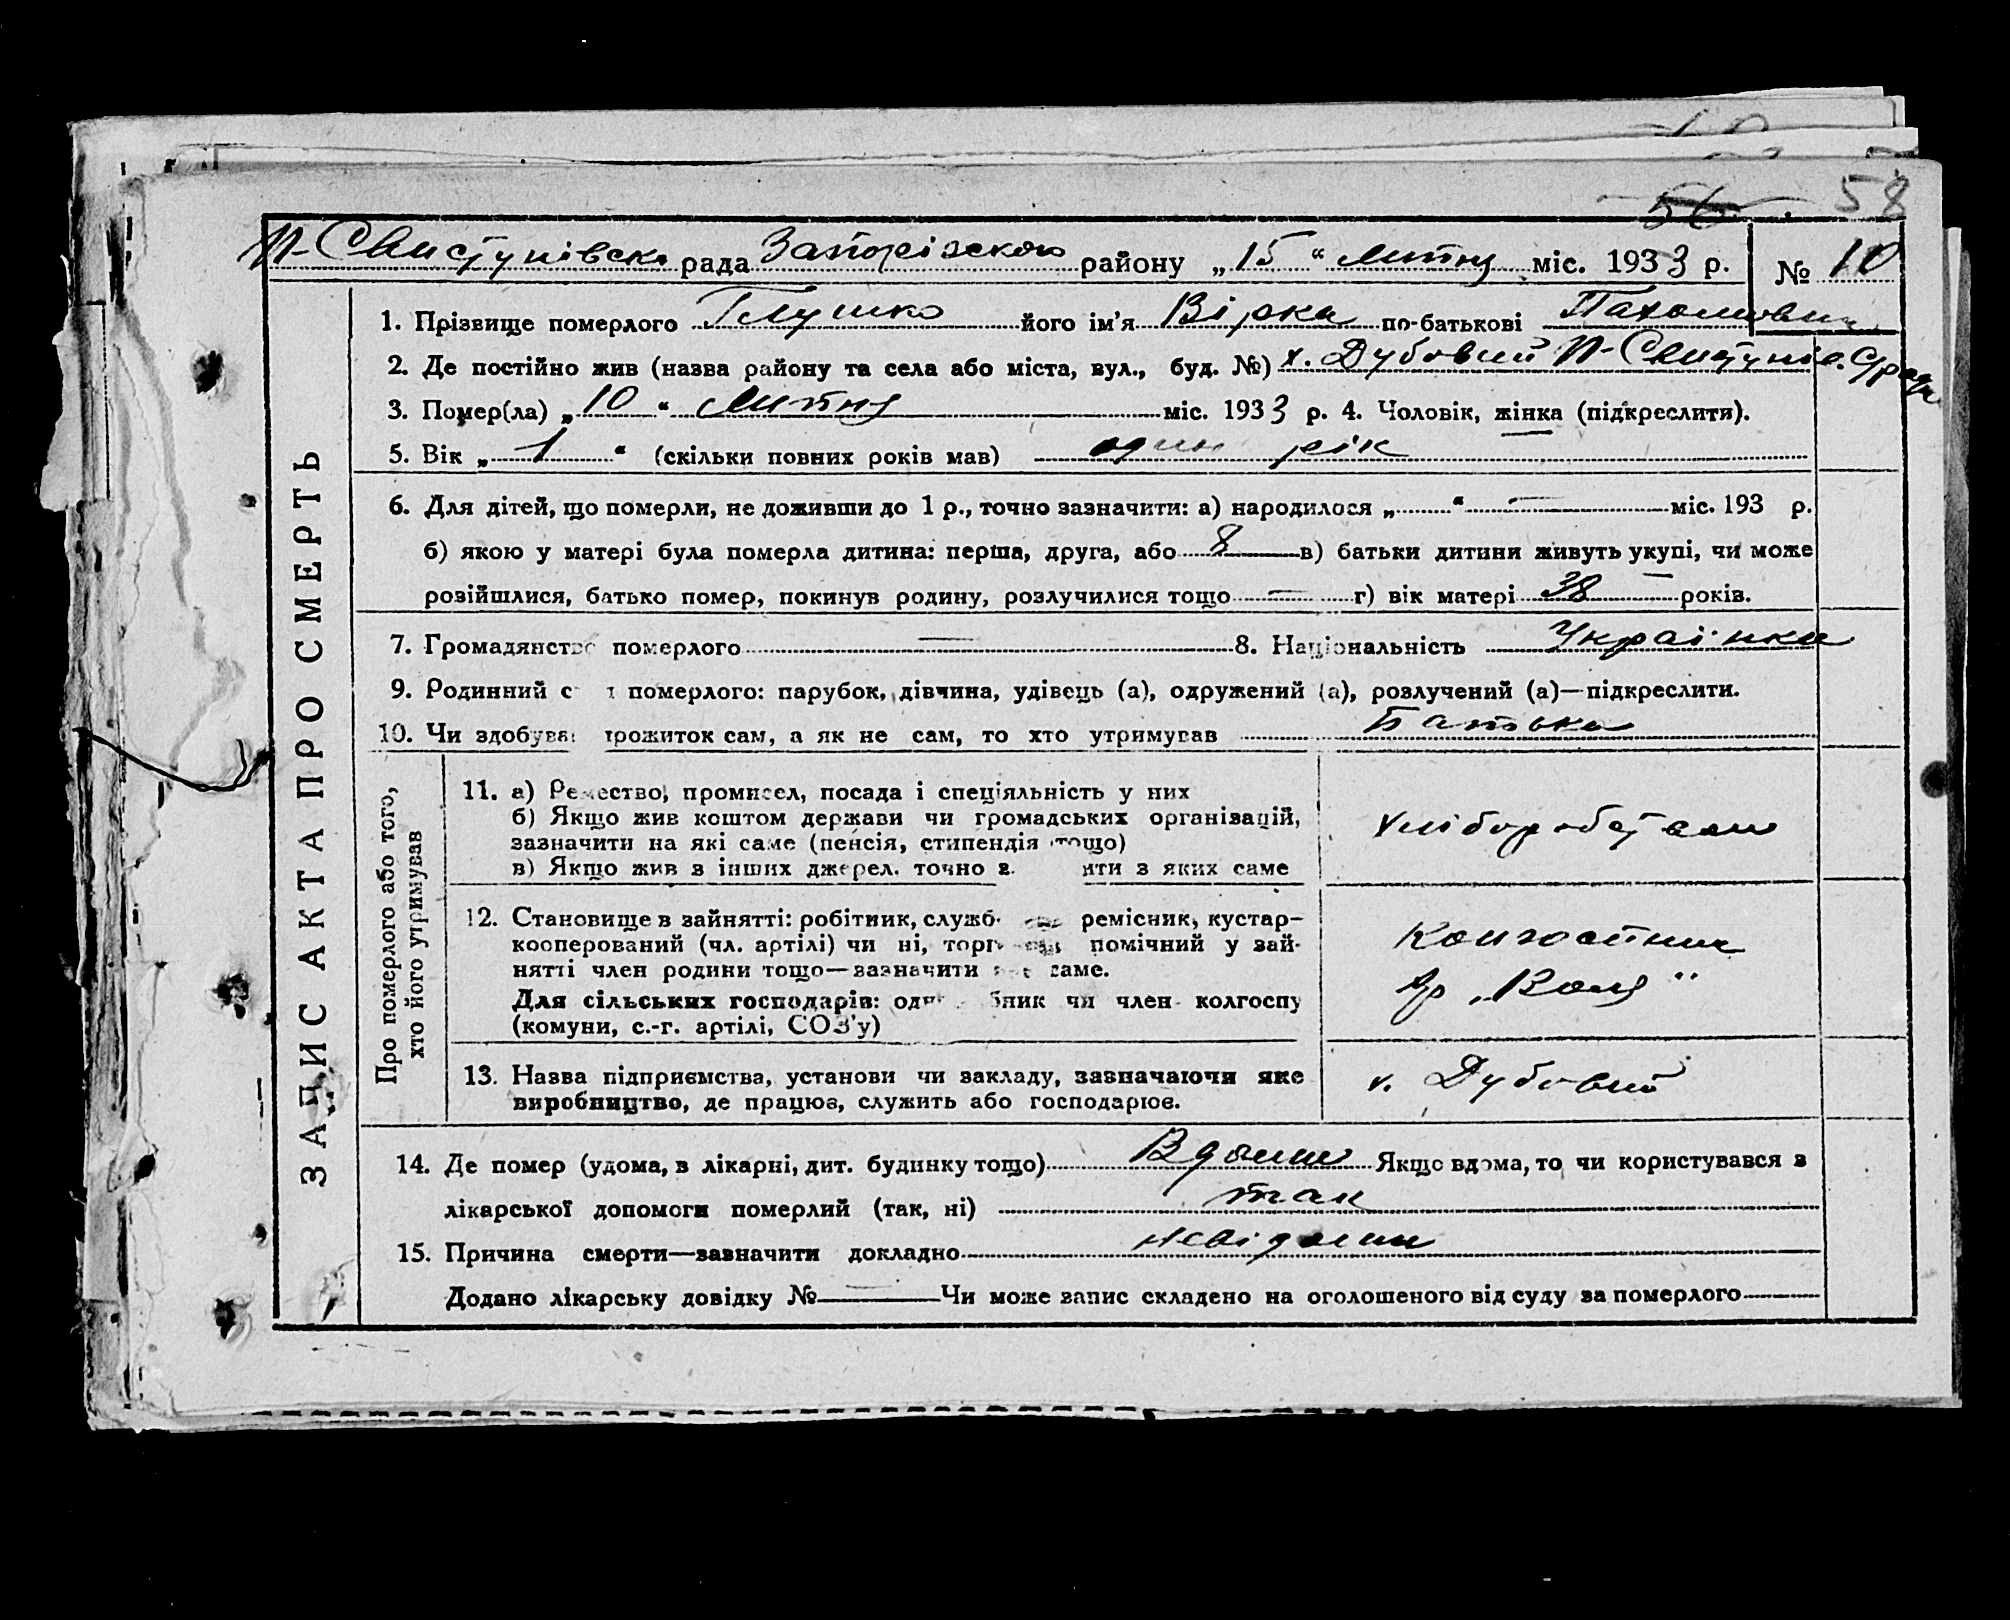 56 58
Н-Свистунівська рада Запорізского району „15“ Лютня міс. 1933 р. № 10
ЗАПИС АКТА ПРО СМЕРТЬ
1. Прізвище померлого Глушко його ім’я Вірка по-батькові Пахомовна
2. Де постійно жив (назва району та села або міста, вул., буд. №) х. Дубовий Н-Свистунів. С/рада
3. Помер(ла) „10“ Лютня міс. 1933 р. 4. Чоловік, жінка (підкреслити).
5. Вік „1“ (скільки повних років мав) один рік
6. Для дітей, що померли, не доживши до 1 р., точно зазначити: а) народилося „ “ — міс. 193 р.
б) якою у матері була померла дитина: перша, друга, або 8 в) батьки дитини живуть укупі, чи може
розійшлися, батько помер, покинув родину, розлучилися тощо — г) вік матері 38 років.
7. Громадянство померлого — 8. Національність Українка
9. Родинний с померлого: парубок, дівчина, удівець (а), одружений (а), розлучений (а)—підкреслити.
10. Чи здобував прожиток сам, а як не сам, то хто утримував Батько
Про померлого або того,
хто його утримував
11. а) Ремество, промисел, посада і спеціяльність у них
б) Якщо жив коштом держави чи громадських організацій,
зазначити на які саме (пенсія, стипендія тощо)
в) Якщо жив з інших джерел, точно з ити з яких саме
хліборобством
12. Становище в зайнятті: робітник, служб ремісник, кустар–
кооперований (чл. артілі) чи ні, торг помічний у зай-
нятті член родини тощо—зазначити саме.
Для сільських господарів: одн бник чи член колгоспу
(комуни, с.-г. артілі, СОЗ’у)
Колгоспник
„Воля“
13. Назва підприємства, установи чи закладу, зазначаючи яке
виробництво, де працює, служить або господарює.
х. Дубовий
14. Де помер (удома, в лікарні, дит. будинку тощо) Вдома Якщо вдома, то чи користувався з
лікарської допомоги померлий (так, ні) так
15. Причина смерти—зазначити докладно невідома
Додано лікарську довідку № — Чи може запис складено на оголошеного від суду за померлого —